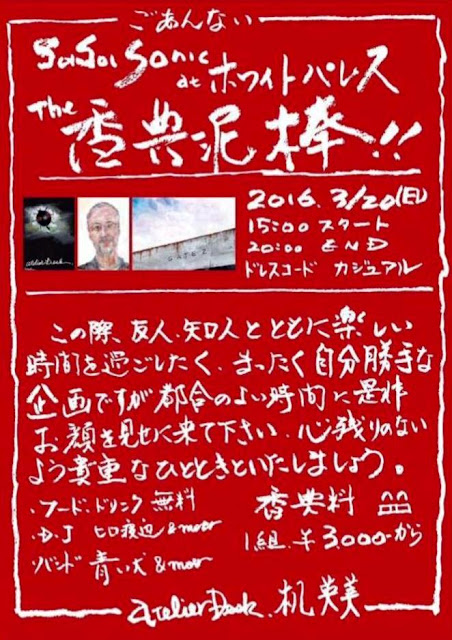 ごあんない
SaSa Sonic
at ホワイトパレス
The 香典泥棒!!
2016. 3/20(日)
15:00 スタート
20:00 END
ドレスコード カジュアル
この際、友人、知人とともに楽しい
時間を過ごしたく、まったく自分勝手な
企画ですが都合のよい時間に是非
お顔を見せに来て下さい、心残りのない
よう貴重なひとときといたしましょう。
・フード、ドリンク 無料
・D.J ヒロ渡辺 & more
・バンド 青い犬 & more
香典料
1組、¥3,000-から
atelier Desk. 机 英美